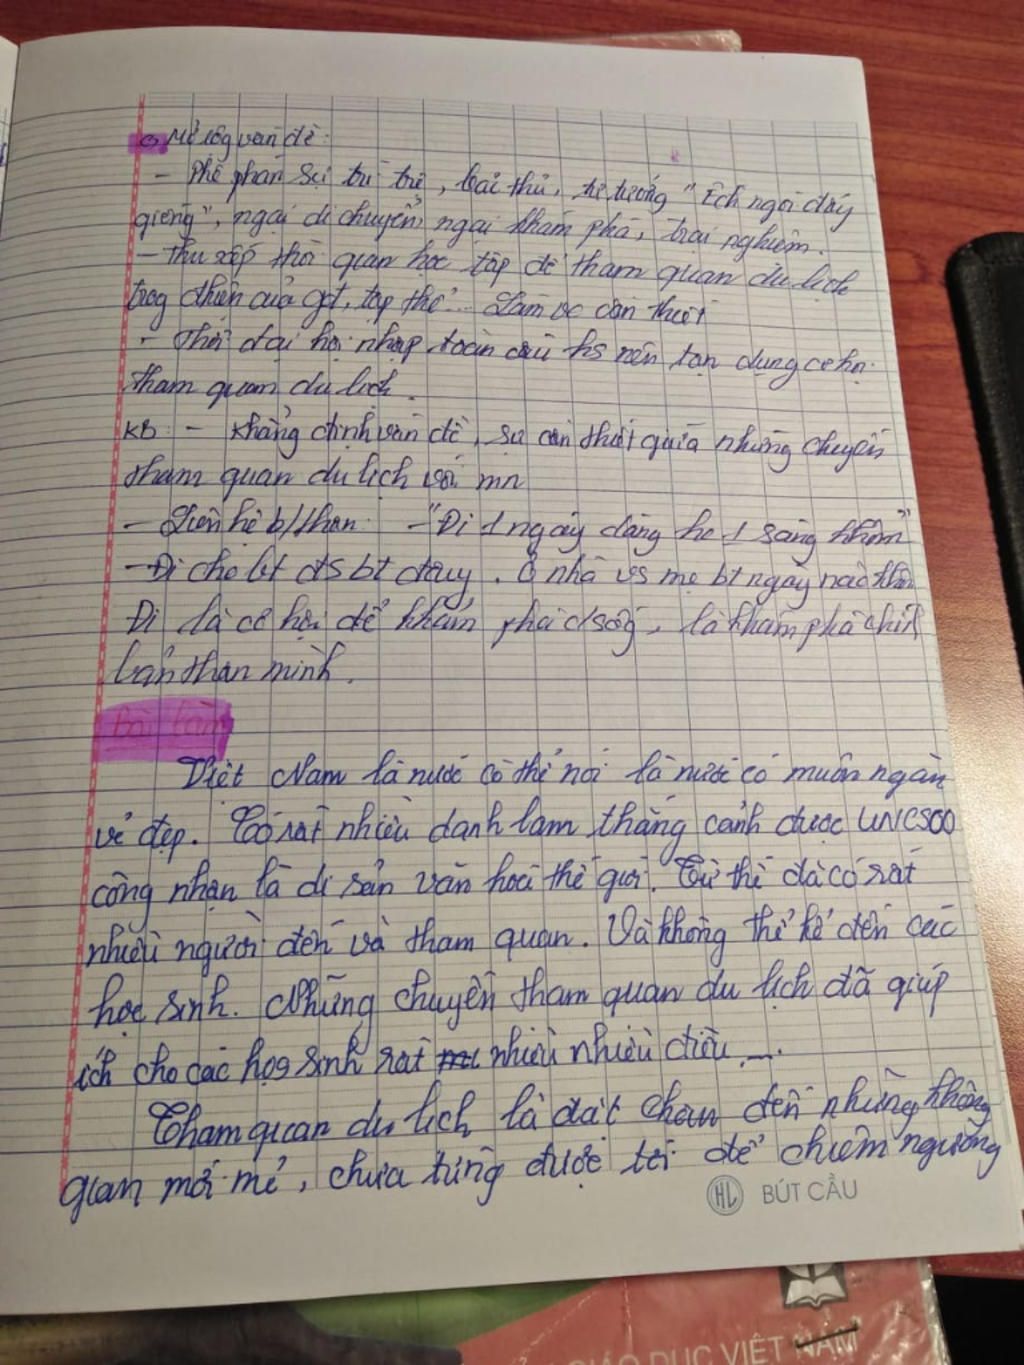 Mở rộg vấn đề:
- Phê phán sự trì trệ, , tư tưởng "Ếch ngồi đáy
giếng", ngại di chuyển, ngại khám phá, trải nghiệm.
- Thu xếp thời gian học tập để tham quan du lịch
trog của gđ, tập thể... Làm vc cần thiết
- Thời đại hội nhập toàn cầu hs nên tận dụng cơ hội
tham quan du lịch.
KB: - Khẳng định vấn đề, sự cần thiết giữa những chuyến
tham quan du lịch với mn
- Liên hệ b/thân: - "Đi 1 ngày đàng học 1 sàng khôn"
- Đi cho bt đó bt đây. Ở nhà vs mẹ bt ngày nào khôn
Đi là cơ hội để khám phá c/sốg, là khám phá chính
bản thân mình.
Bài làm
Việt Nam là nước có thể nói là nước có muôn ngàn
vẻ đẹp. Có rất nhiều danh lam thắng cảnh được UNCSOO
công nhận là di sản văn hoá thế giới. Từ thế đã có rất
nhiều người đến và tham quan. Và không thể kể đến các
học sinh. Những chuyến tham quan du lịch đã giúp
ích cho các học sinh rất nhiều nhiều điều ....
Tham quan du lịch là đặt chân đến những không
gian mới mẻ, chưa từng được tới để chiêm ngưỡng
HL BÚT CẦU
GIÁO DỤC VIỆT NAM